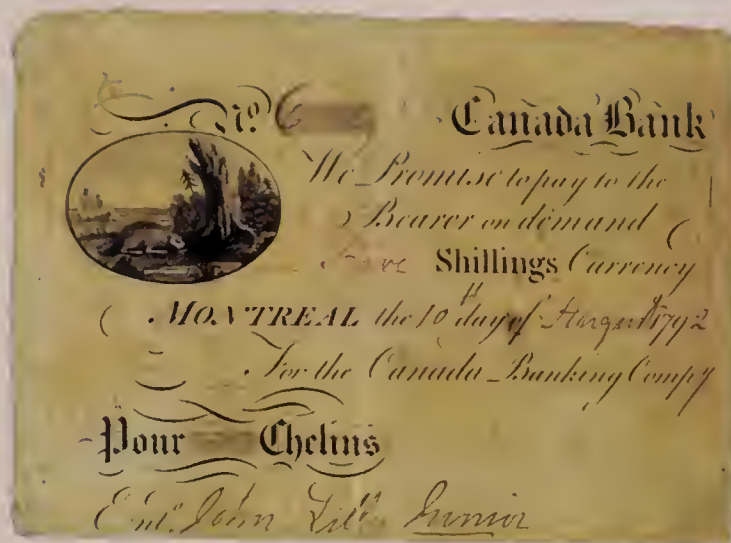 No. Canada Bank
We Promise to pay to the
Bearer on demand
Five Shillings Currency
MONTREAL the 10th day of August 1792
For the Canada Banking Compy
Pour Chelins
Entd. John Lilly Junior